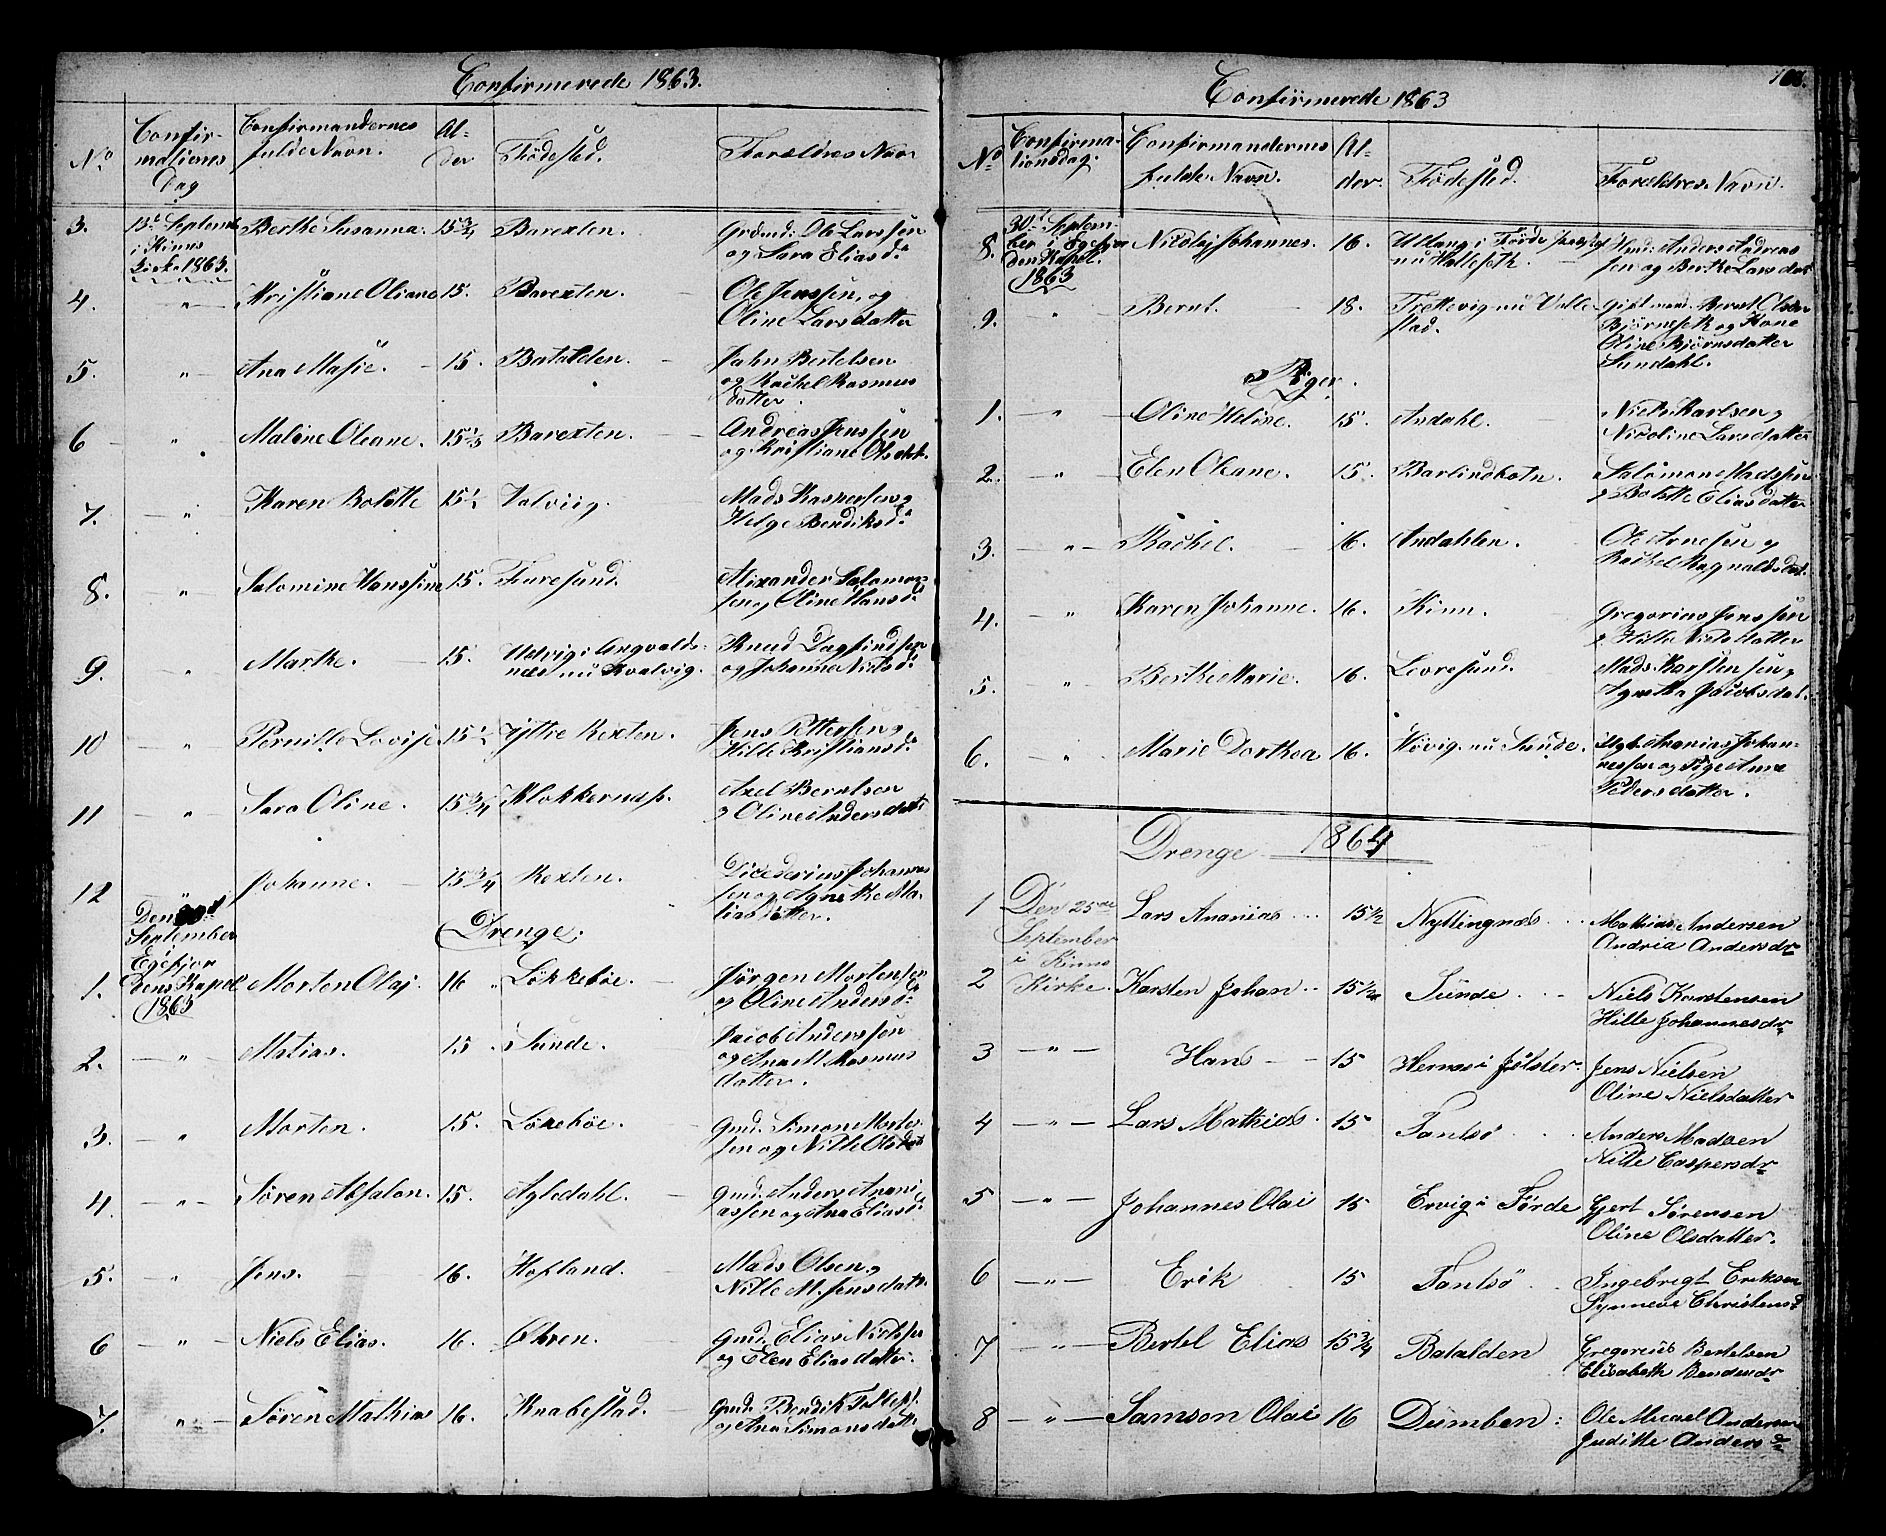 Confirmerede 1863.
No
Confir-
mations
Dag
Confirmandernes
fulde Navn.
Al-
der
Fødested.
Forældres Navn
3. 13de Septemb
i Kinns
Kirke 1863.
Berthe Susanna. 15 3/4 Barexten. Grdmd: Ole Larssen
og Sara Eliasd.
4. " Kristiane Oliane 15. Barexten. Ole Jenssen, og
Oline Larsdatter
5. " Ana Masie. 15. Batalden. Jahn Bertelsen
og Rachel Rasmus
datter.
6 " Maline Oleane. Barexten. Andreas Jenssen
og Kristiane Olsdat.
7. " Karen Bolette Mads Rasmussen og
Helge Bendiksd.
8. " Salomine Hanssine 15. Furesund. Alexander Salomon
sen og Oline Hansd.
9. " Marthe. 15. Angvalds-
næs nu Kvalvig. Knud Dagfindsen
og Johanne Nielsd.
10 " Pernille Lovise Yttre Rexten. Jens Pettersen og
Hille Kristiansd.
11 " Sara Oline. 15 3/4 Klokkernæs. Axel Berntsen
og Oline Andersdatt
12 " Johanne. 15 3/4 Rexten. Johannes
sen og Agnethe Ma-
tiasdatter.
Den
September
i
Egefjor
dens Kapel
1863
Drenge.
1. Morten Olaj. 16 Løkkebøe. Jørgen Mortensen
og Oline Andersd.
2. " Matias. 15 Sunde. Jacob Anderssen
og Ana M. Rasmus
datter.
3. " Morten. 15. Løkebøe. Gmd. Simon Morten
sen og Nille Olsdat
4. " Søren Absalon. 15. Agledahl. Gmd. Anders Anani
assen og Ana Eliasd.
5. " Jens. 16. Hofland. Mads Olsen og
Nille M. Jensdatt.
6 " Niels Elias. 16. Øhren. Gmd. Elias Nielssen
og Elen Eliasdatter.
7. " Søren Mathias 16. Knabestad. Gmd. Bendik Tollefs.
og Ana Simonsdatt
Confirmerede 1863
No
Confirma-
tionsdag.
Confirmandernes
fulde Navn.
Al-
der.
Fødested.
Forældres Navn.
8. 30te Septem-
ber i Egefjor
dens Kapel.
1863
Nicolaj Johannes. 16. i Førde
nu Hellesetk. Anders Andreas
sen og Berthe Larsdat
9. " Bernt. 18. Trettevig nu Velle-
stad. Gift mand. Bernt Olsen
Bjørnsetk og Kone
Oline Bjørnsdatter
Sundahl.
Piger.
1. " Oline Heline. 15. Asdahl. Niels Karlsen og
Nicoline Larsdatter
2. " Elen Oleane. 15. Barlindbotn. Salomon Madssen
og Bolette Eliasdatter
3. " Rachel. 16. Andahlen. Ole Arnesen og
Rachel Ragnaldsdat.
4. " Karen Johanne. 16. Kinn. Gregorius Jenssen
og Hille Nielsdatter
5. " Berthe Marie. 16. Levresund. Mads Karstensen og
Agnetha Jacobsdat.
6. " Marie Dorthea 16. Høvig nu Sunde. Ananias Johan-
nessen og Pige Ane
Pedersdatter.
Drenge 1864
1 Den 25de
September
i Kinns
Kirke.
Lars Ananias 15 1/2 Nyttingnæs Mathias Andersen
Andria Andersdr
2 Karsten Johan Sunde Niels Karstensen
Hille Johannesdr
3 " Hans 15 Hernæs i Jølster. Jens Nielsen
Oline Nielsdatter
4 " Lars Mathias. 15 Fantsø Anders Madsen
Nille Caspersdr
5 " Johannes Olai 15 Ervig i Førde Gjert Sørensen
Oline Olsdatter.
6 " Erik 15 Fantsø Ingebrigt Eriksen
Synneve Christensd
7 " Bertel Elias 15 3/4 Batalden Gregorius Bertelsen
Elisabeth
8 " Samson Olai 16 Dumben: Ole Micael Andersen
Judithe Anders